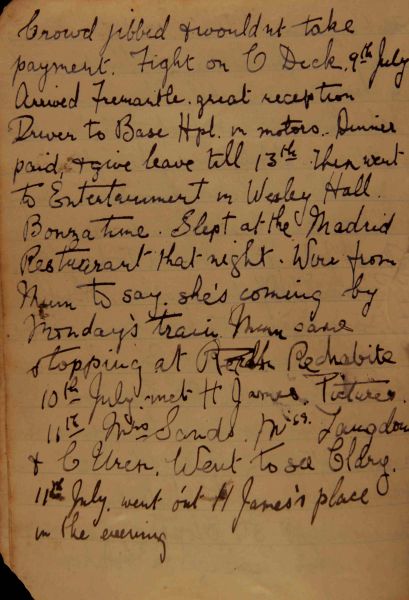 Crowd jibbed & wouldnt take
payment. Fight on C Deck. 9th July
Arrived Fremantle. great reception
Driven to Base Hpl. in motors. Dinner
paid, & give leave till 13th. Then went
to Entertainment in Wesley Hall.
Bonza time. Slept at the Madrid
Restuarant that night. Wire from
Mum to say. she's coming by
Monday's train. Mum came
stopping at Rechabite
10th July. met H James. Pictures.
11th Mrs Sands. Langdon
& C Uren. Went to see
11th July. went out H James's place
in the evening